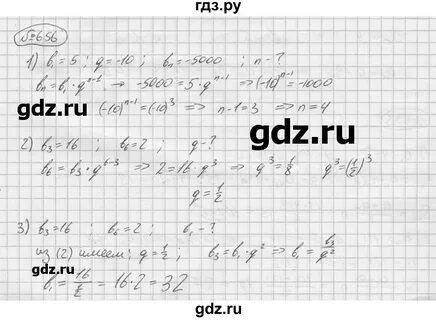 гдз.ру
№656
1) b₁=5 ; q=-10 ; bₙ=-5000 ; n-?
bₙ=b₁·qⁿ⁻¹ → -5000=5·qⁿ⁻¹ ⇒ (-10)ⁿ⁻¹=-1000
(-10)ⁿ⁻¹=(-10)³ ⇒ n-1=3 ⇒ n=4
gdz.ru
gdz.ru
2) b₃=16 ; b₆=2 ; q-?
b₆=b₃·q⁶⁻³ ⇒ 2=16·q³ ⇒ q³=1/8 q³=(1/2)³
q=1/2
3) b₃=16 ; b₆=2 ; b₁-?
из (2) имеем: q=1/2 ; b₃=b₁·q² ⇒ b₁=b₃/q²
gdz.ru
gdz.ru
b₁=16/½=16·2=32